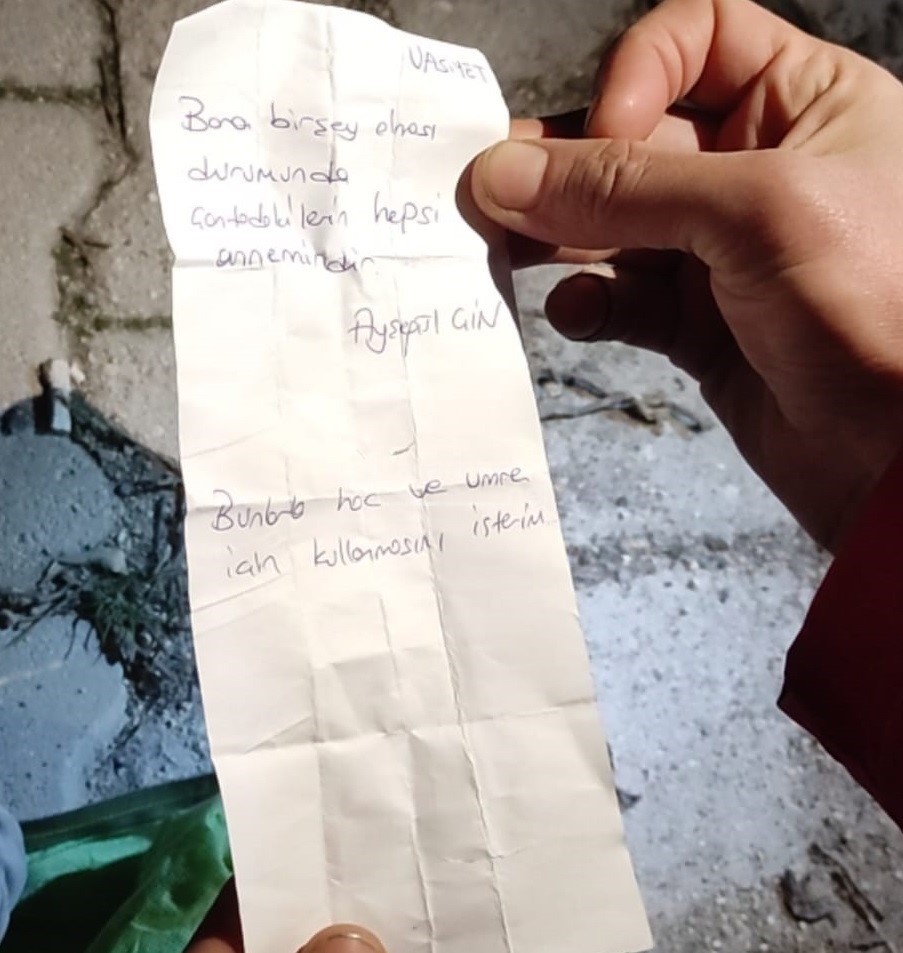 VASİYET
Bana birşey olması
durumunda
çantadakilerin hepsi
annemindir
Ayşegül GİN
Bunlarla hac ve umre
için kullanmasını isterim